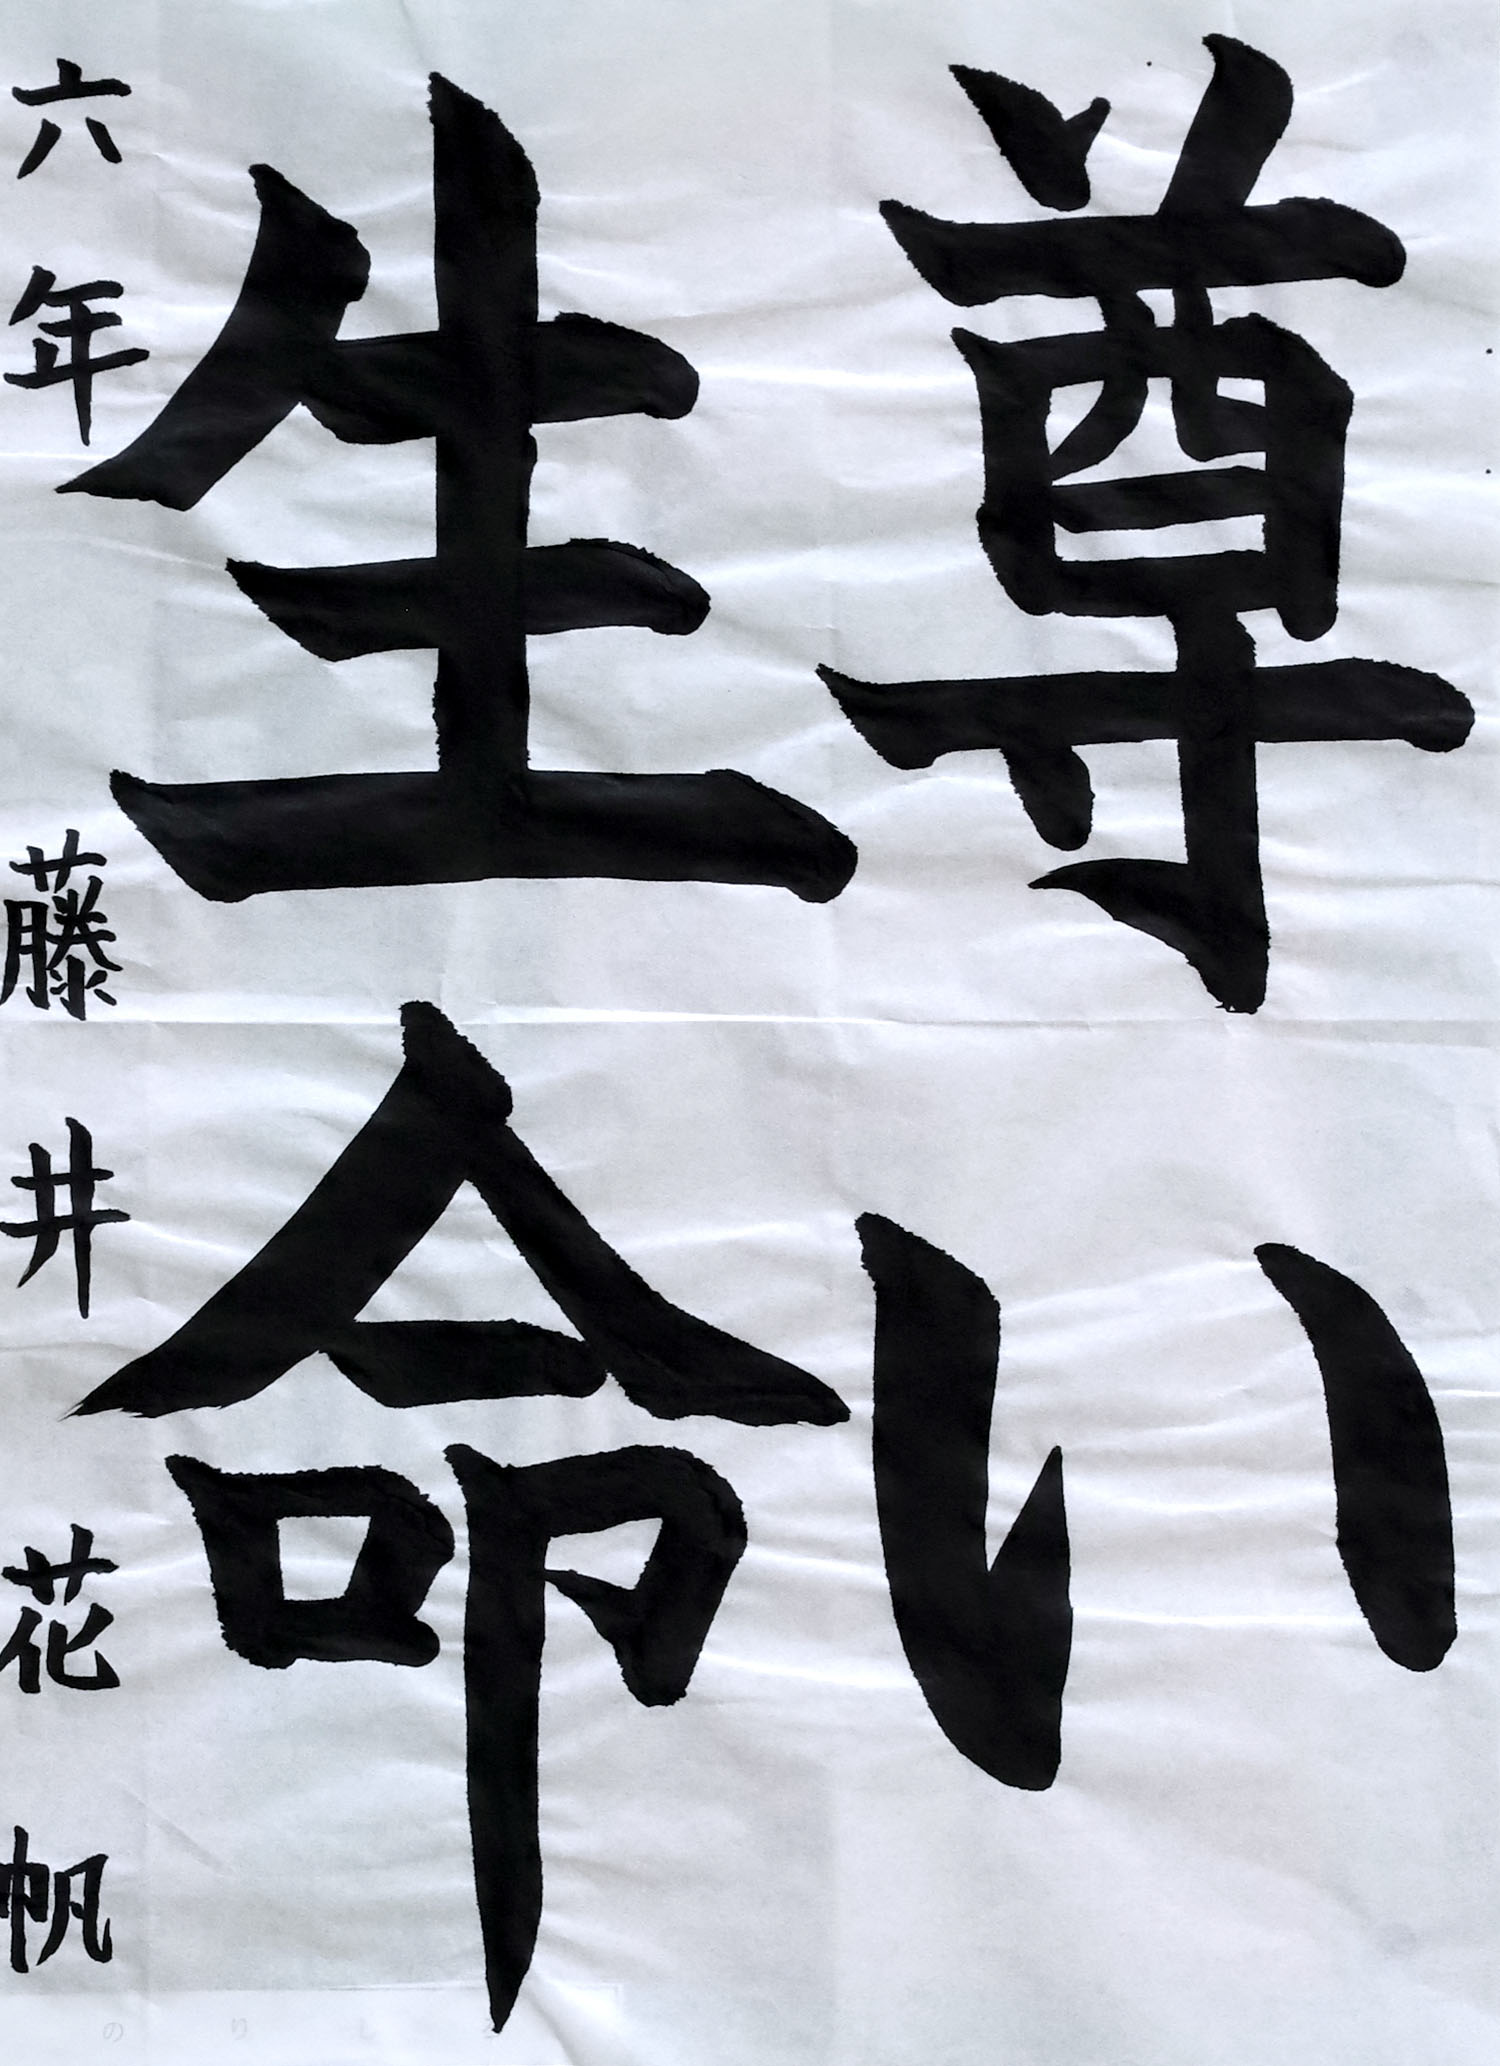 尊い
生命
六年 藤井花帆